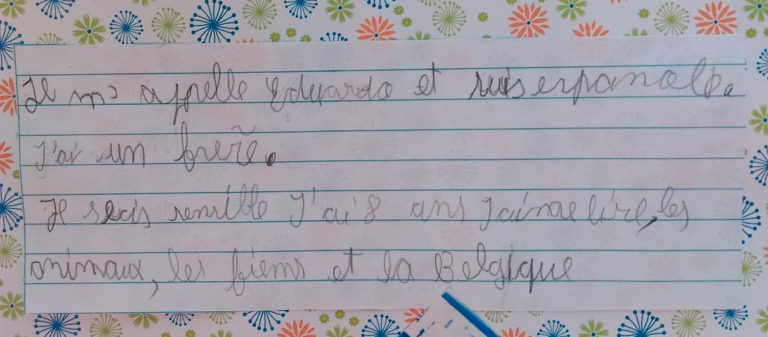 Je me appelle Eduardo et suis espanole.
J'ai un frere.
Je suis sensible J'ai 8 ans J'aime lire, les
animaux, les et la Belgique